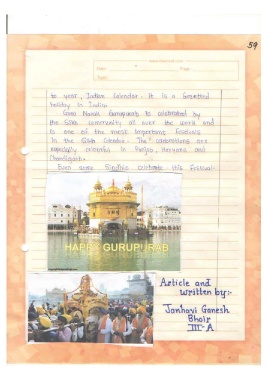 59
Date
Page
Topic
to year, Indian Calendar. It is a Gazetted
holiday in India.
Guru Nanak Gurupurab is celebrated by
the Sikh community all over the world and
is one of the most important festivals
in the Sikh Calendar. The celebrations are
especially colourful in Punjab, Haryana and
Chandigarh.
Even some Sindhis celebrate this festival.
HAPPY GURUPURAB
Article and
written by:-
Janhavi Ganesh
Bhoir
III-A